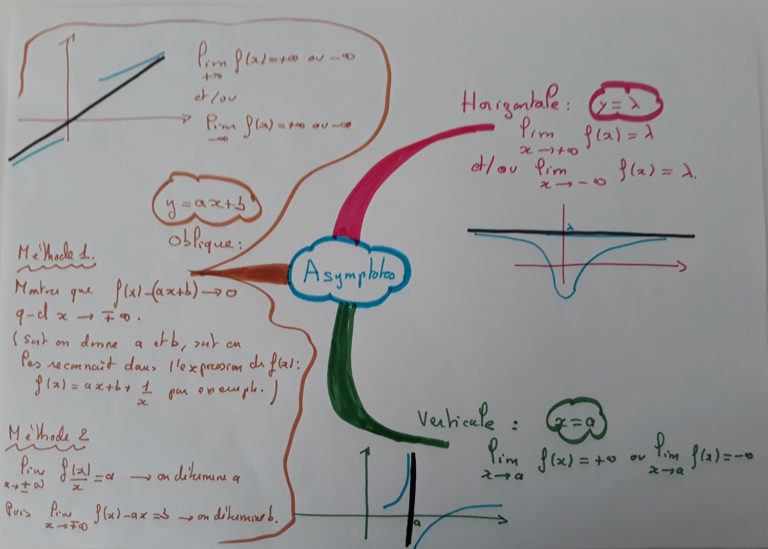 lim f(x)=+∞ ou -∞
+∞
et/ou
lim f(x)=+∞ ou -∞
-∞
y=ax+b
Oblique:
Méthode 1.
Montrer que f(x)-(ax+b)→0
q-d x→∓∞.
(soit on donne a et b, soit on
les reconnaît dans l'expression de f(x):
f(x)=ax+b+1/x par exemple.)
Méthode 2
lim f(x)/x=a → on détermine a
x→±∞
Puis lim f(x)-ax=b → on détermine b.
x→∓∞
Asymptotes
Horizontale: y=λ
lim f(x)=λ
x→+∞
et/ou lim f(x)=λ.
x→-∞
λ
Verticale: x=a
lim f(x)=+∞ ou lim f(x)=-∞
x→a x→a
a